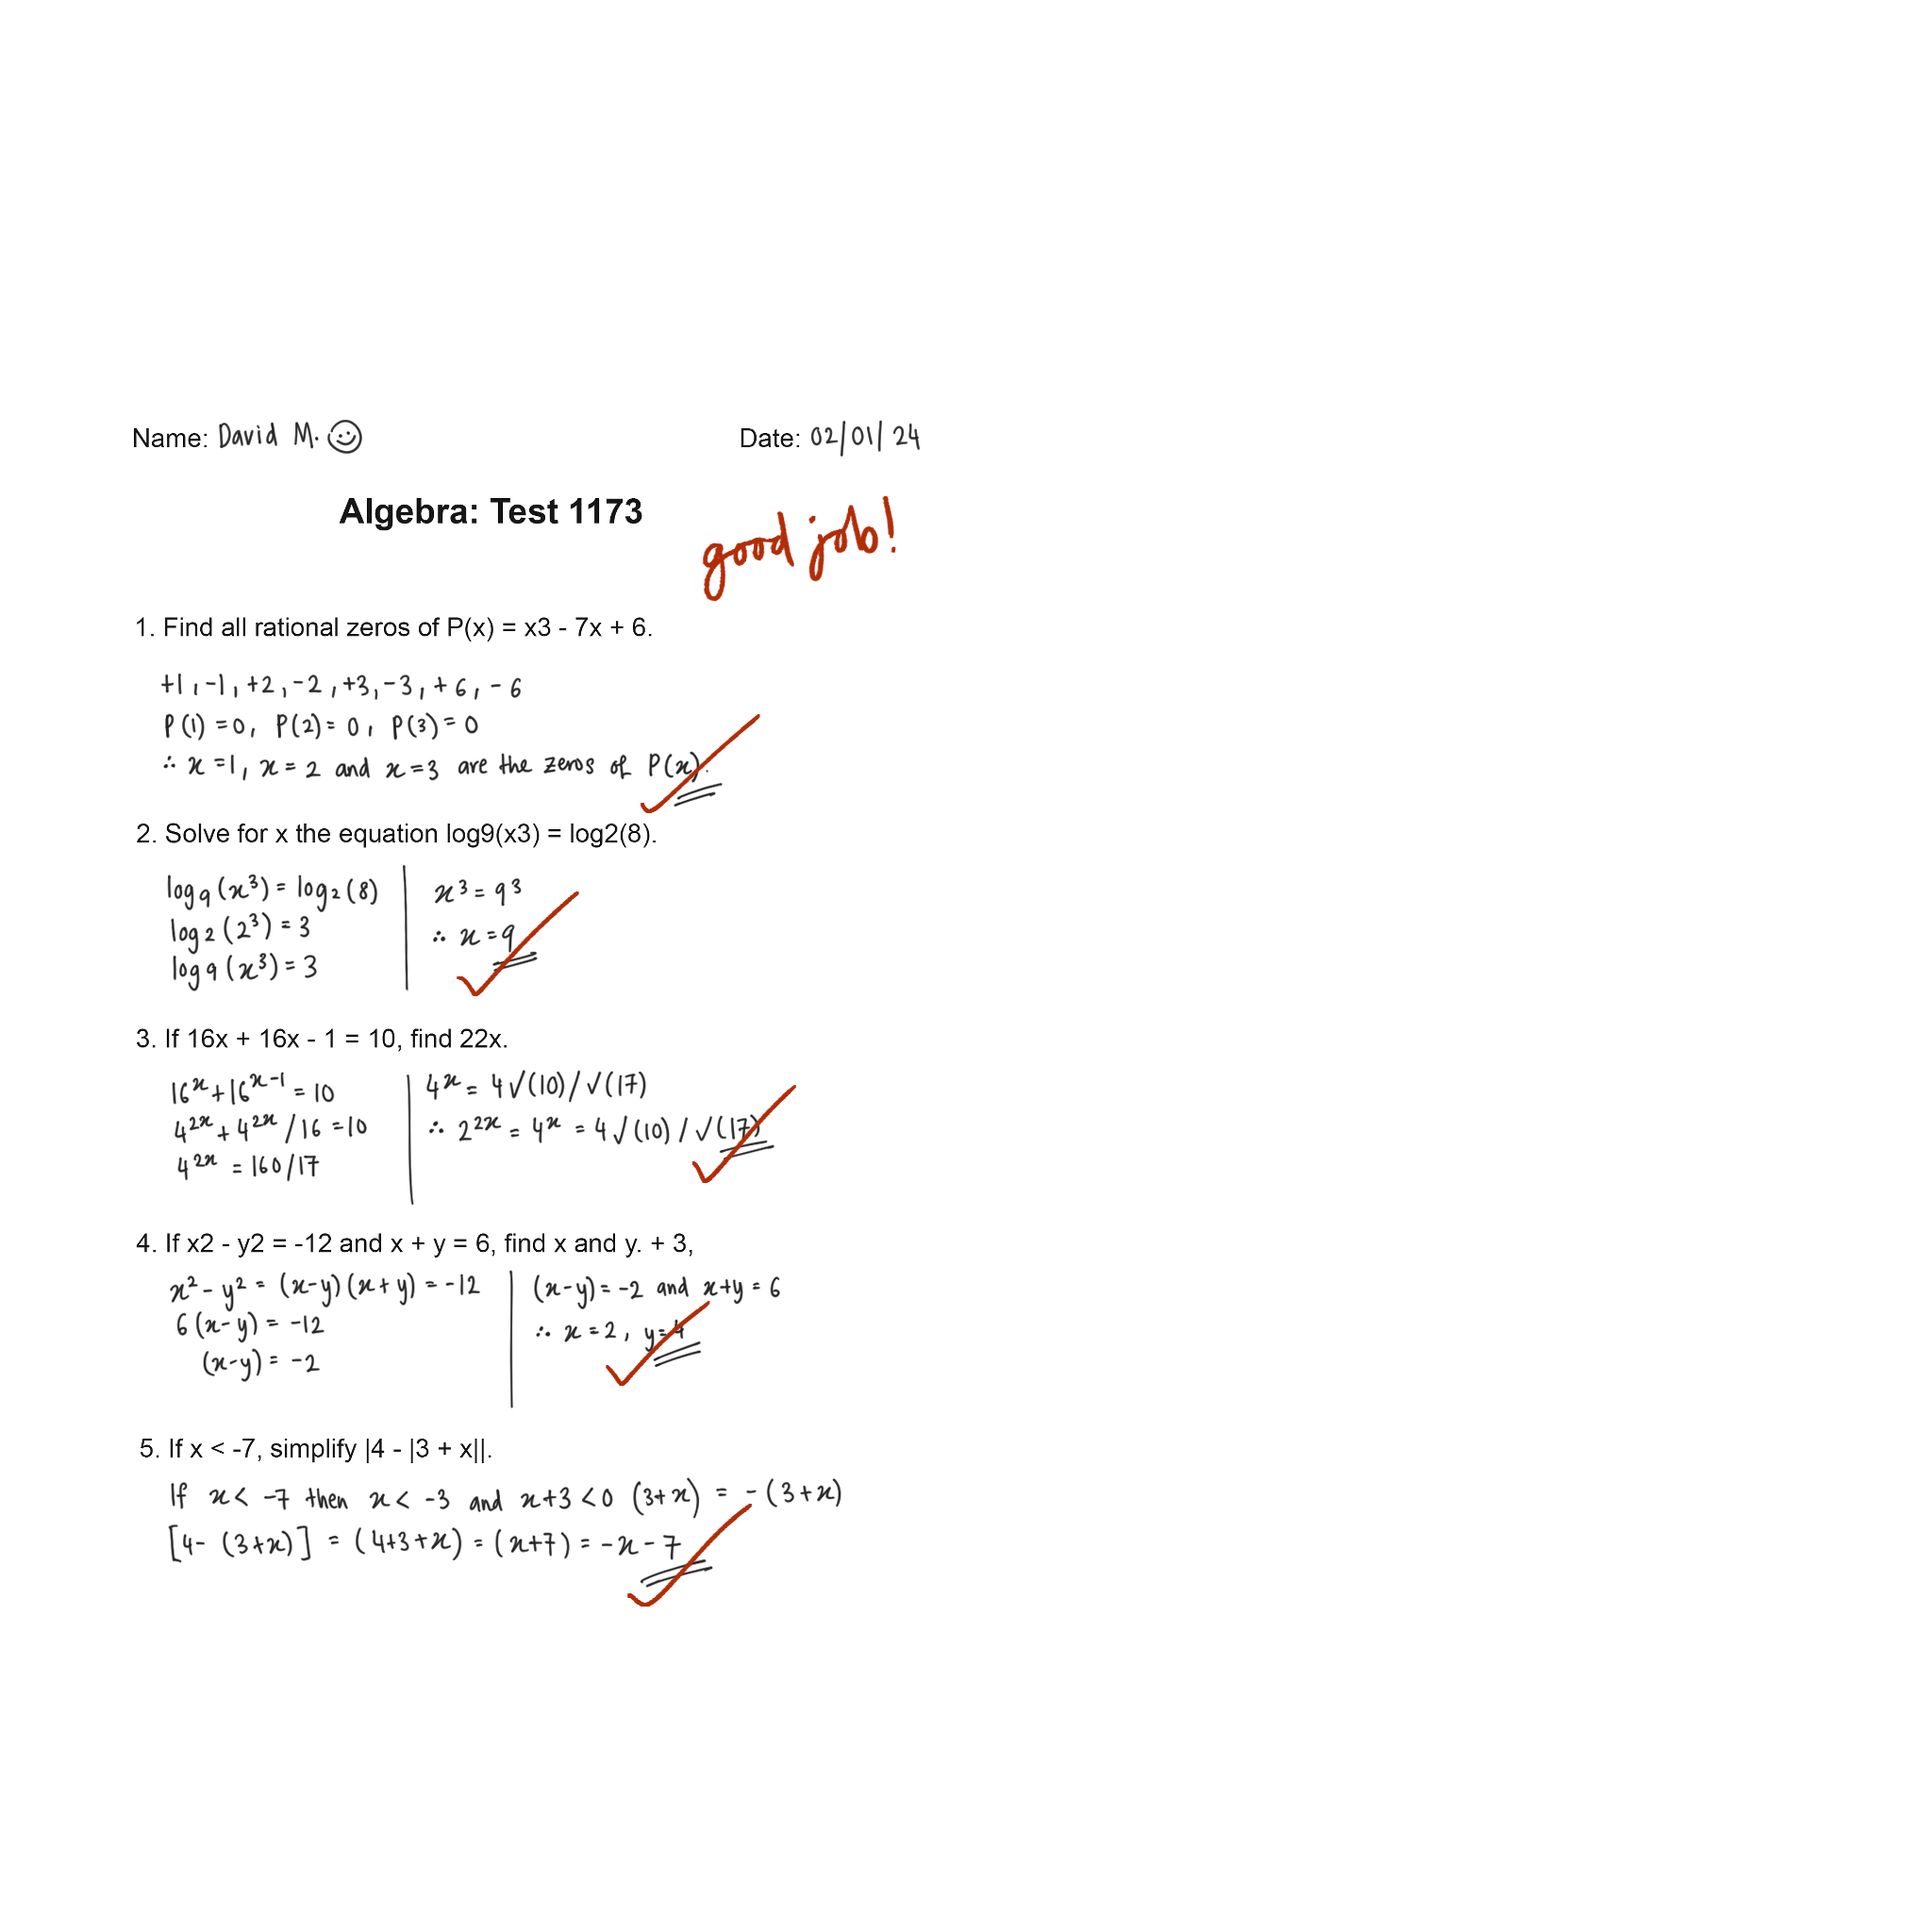 Name: David M.
Date: 02/01/24
Algebra: Test 1173
good job!
1. Find all rational zeros of P(x) = x3 - 7x + 6.
+1, -1, +2, -2, +3, -3, +6, -6
P(1) = 0, P(2) = 0, P(3) = 0
∴ x = 1, x = 2 and x = 3 are the zeros of P(x).
2. Solve for x the equation log9(x3) = log2(8).
log₉(x³) = log₂(8)
log₂(2³) = 3
log₉(x³) = 3
x³ = 9³
∴ x = 9
3. If 16x + 16x - 1 = 10, find 22x.
16ˣ + 16ˣ⁻¹ = 10
4²ˣ + 4²ˣ / 16 = 10
4²ˣ = 160/17
4ˣ = 4√(10)/√(17)
∴ 2²ˣ = 4ˣ = 4√(10)/√(17)
4. If x2 - y2 = -12 and x + y = 6, find x and y. + 3,
x² - y² = (x-y)(x+y) = -12
6(x-y) = -12
(x-y) = -2
(x-y) = -2 and x+y = 6
∴ x = 2, y = 4
5. If x < -7, simplify |4 - |3 + x||.
If x < -7 then x < -3 and x+3 < 0 (3+x) = -(3+x)
[4- (3+x)] = (4+3+x) = (x+7) = -x-7